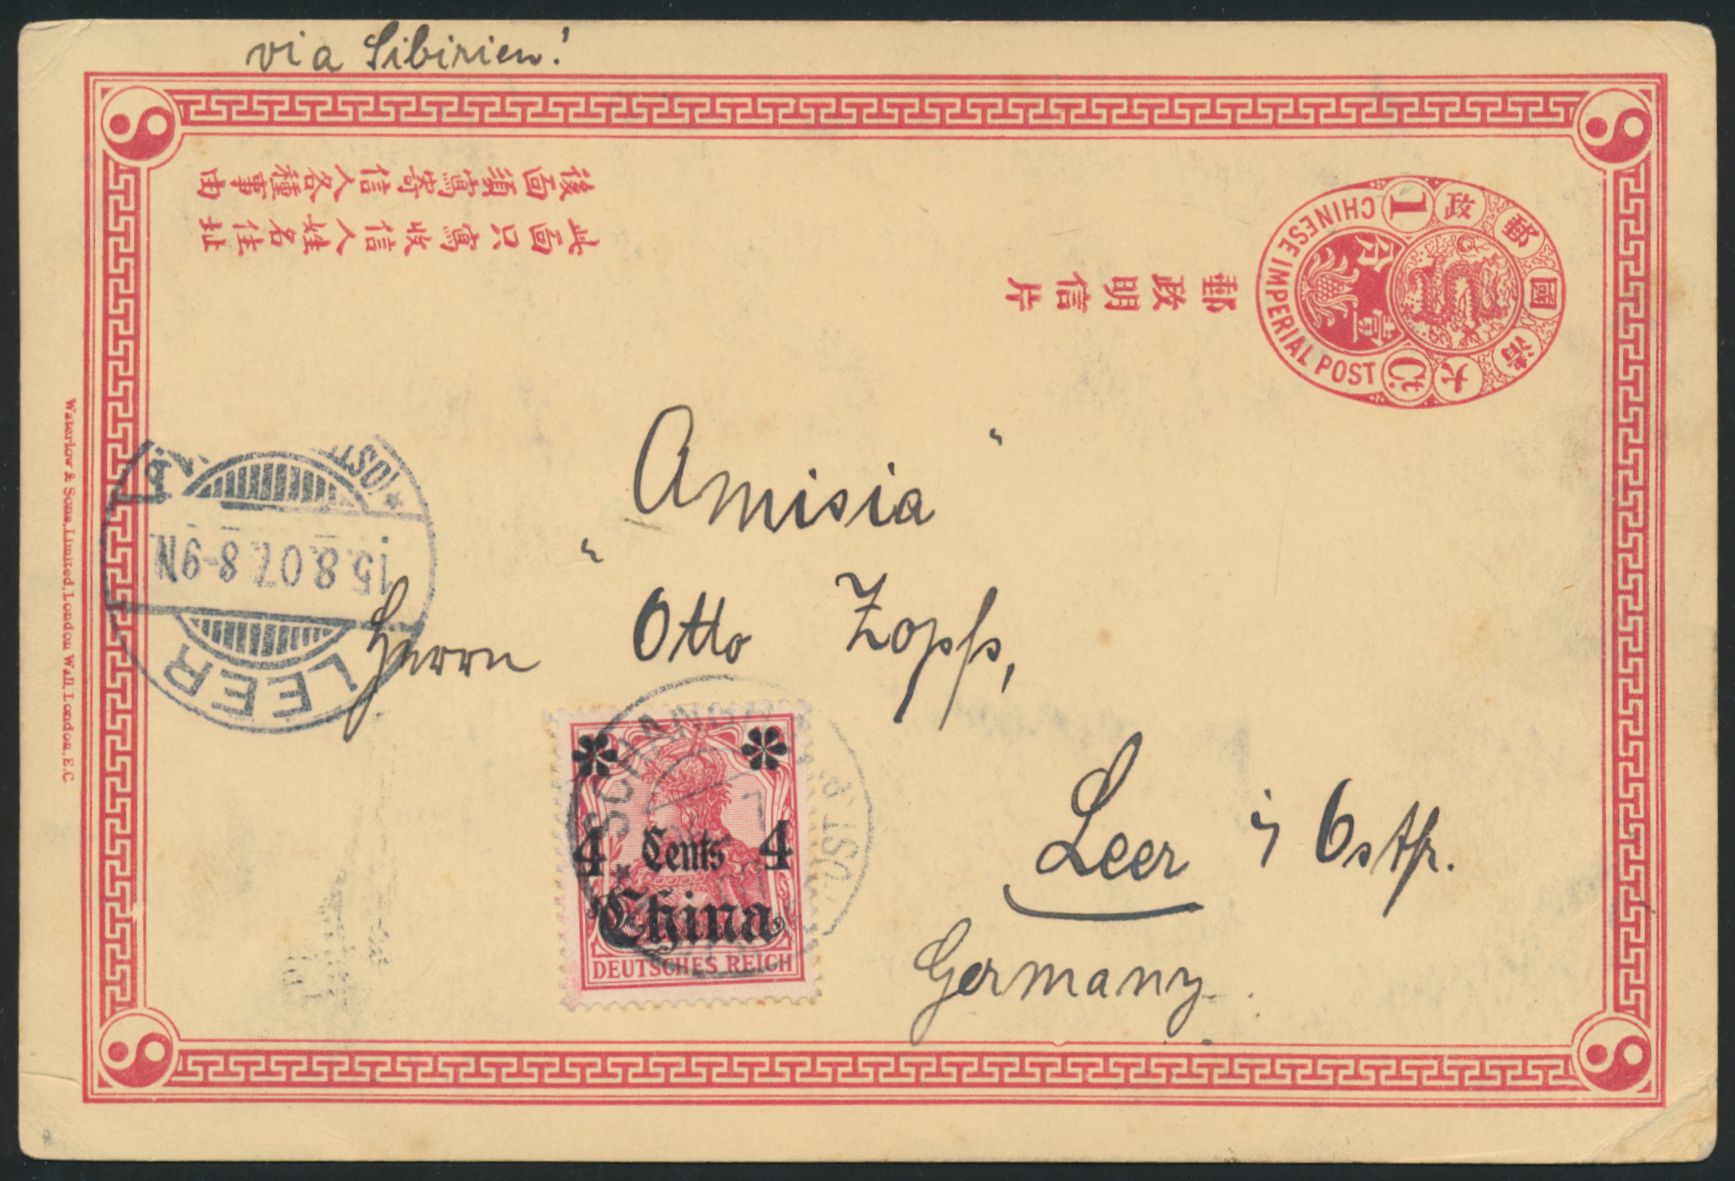 via Sibirien!
後面須寫寄信人各種事由
此面只寫收信人姓名住址
郵政明信片
大清國郵政
CHINESE IMPERIAL POST
1
壹分
Waterlow & Sons, Limited, London Wall, London, E.C.
LEER
15.8.07. 8-9N.
(OST
„Amisia“
Herrn Otto Zopfs,
Leer i/ Ostfr.
Germany.
4 Cents 4
China
DEUTSCHES REICH